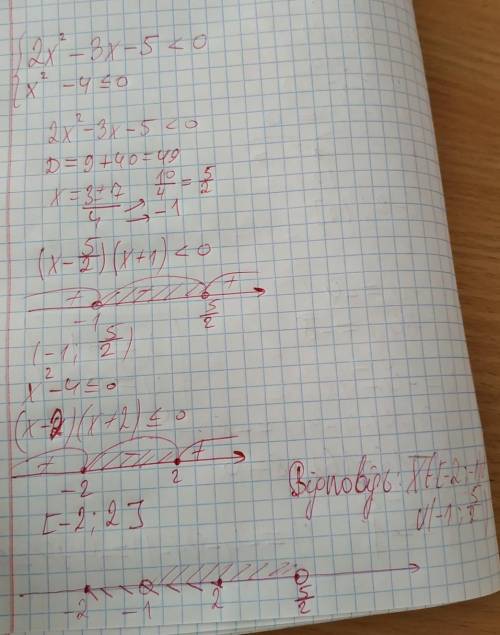 { 2x² - 3x - 5 < 0
{ x² - 4 ≤ 0
2x² - 3x - 5 < 0
D = 9 + 40 = 49
x = (3 ± 7)/4 → 10/4 = 5/2
→ -1
(x - 5/2)(x + 1) < 0
+ - +
-1 5/2
(-1; 5/2)
x² - 4 ≤ 0
(x - 2)(x + 2) ≤ 0
+ - +
-2 2
[-2; 2]
Відповідь: x ∈ [-2; -1)
∪ (-1; 5/2
-2 -1 2 5/2